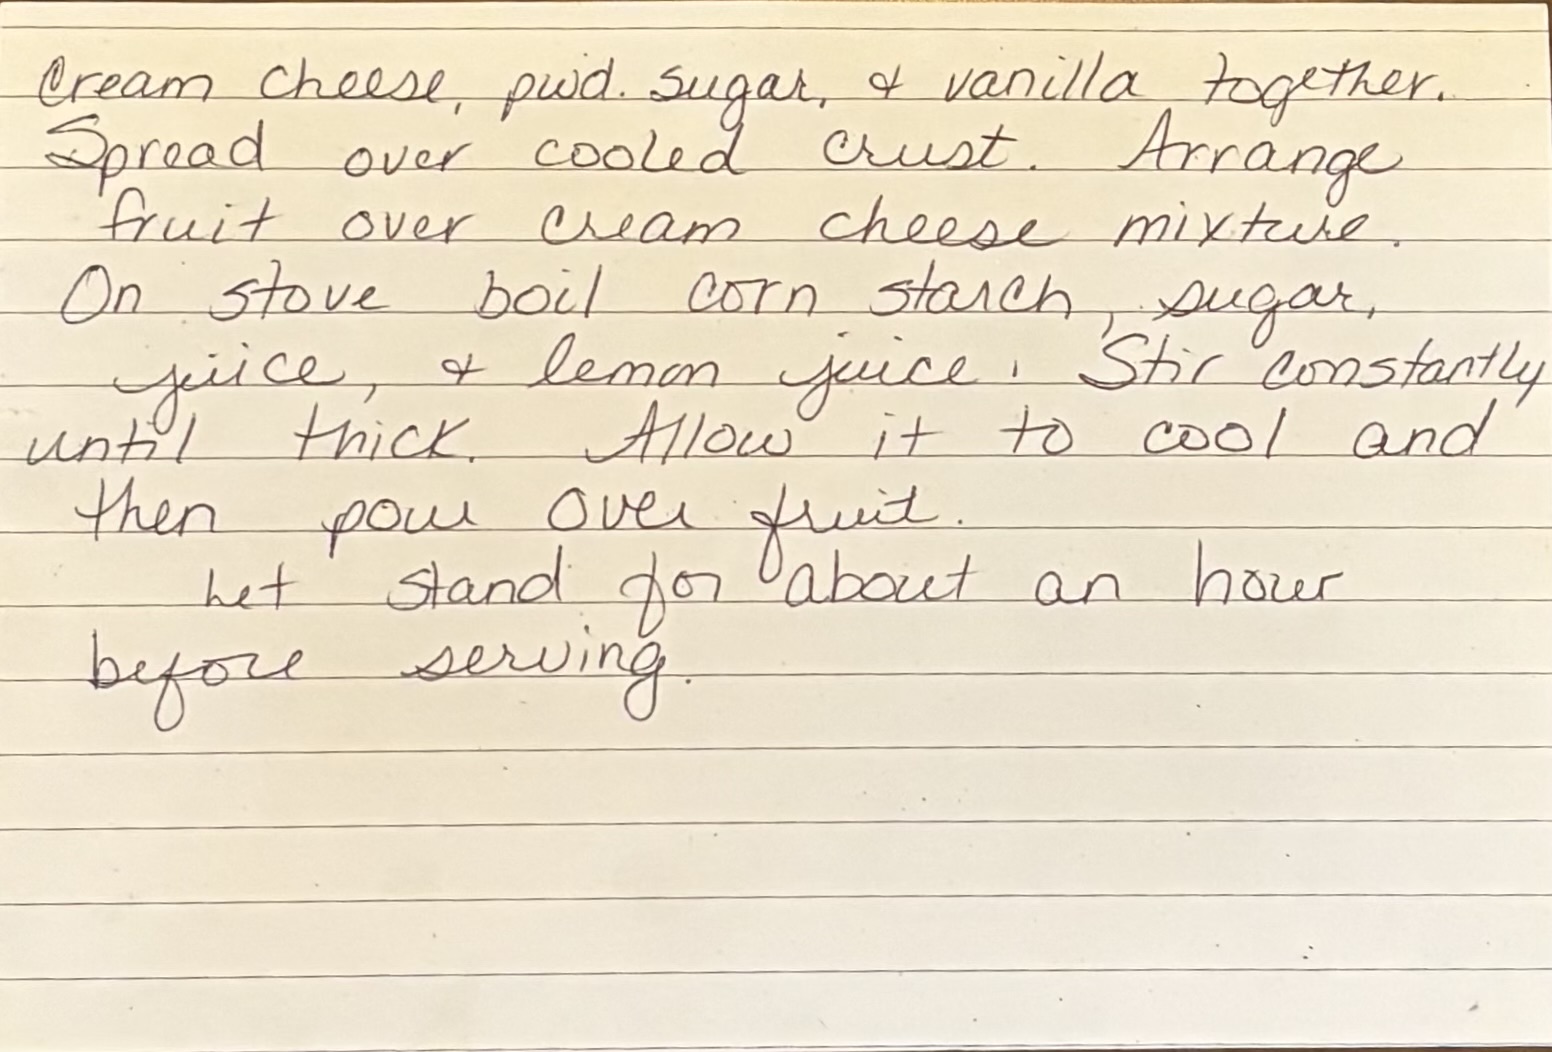 Cream cheese, pwd. sugar, & vanilla together.
Spread over cooled crust. Arrange
fruit over cream cheese mixture.
On stove boil corn starch, sugar,
juice, & lemon juice. Stir constantly
until thick. Allow it to cool and
then pour over fruit.
Let stand for about an hour
before serving.